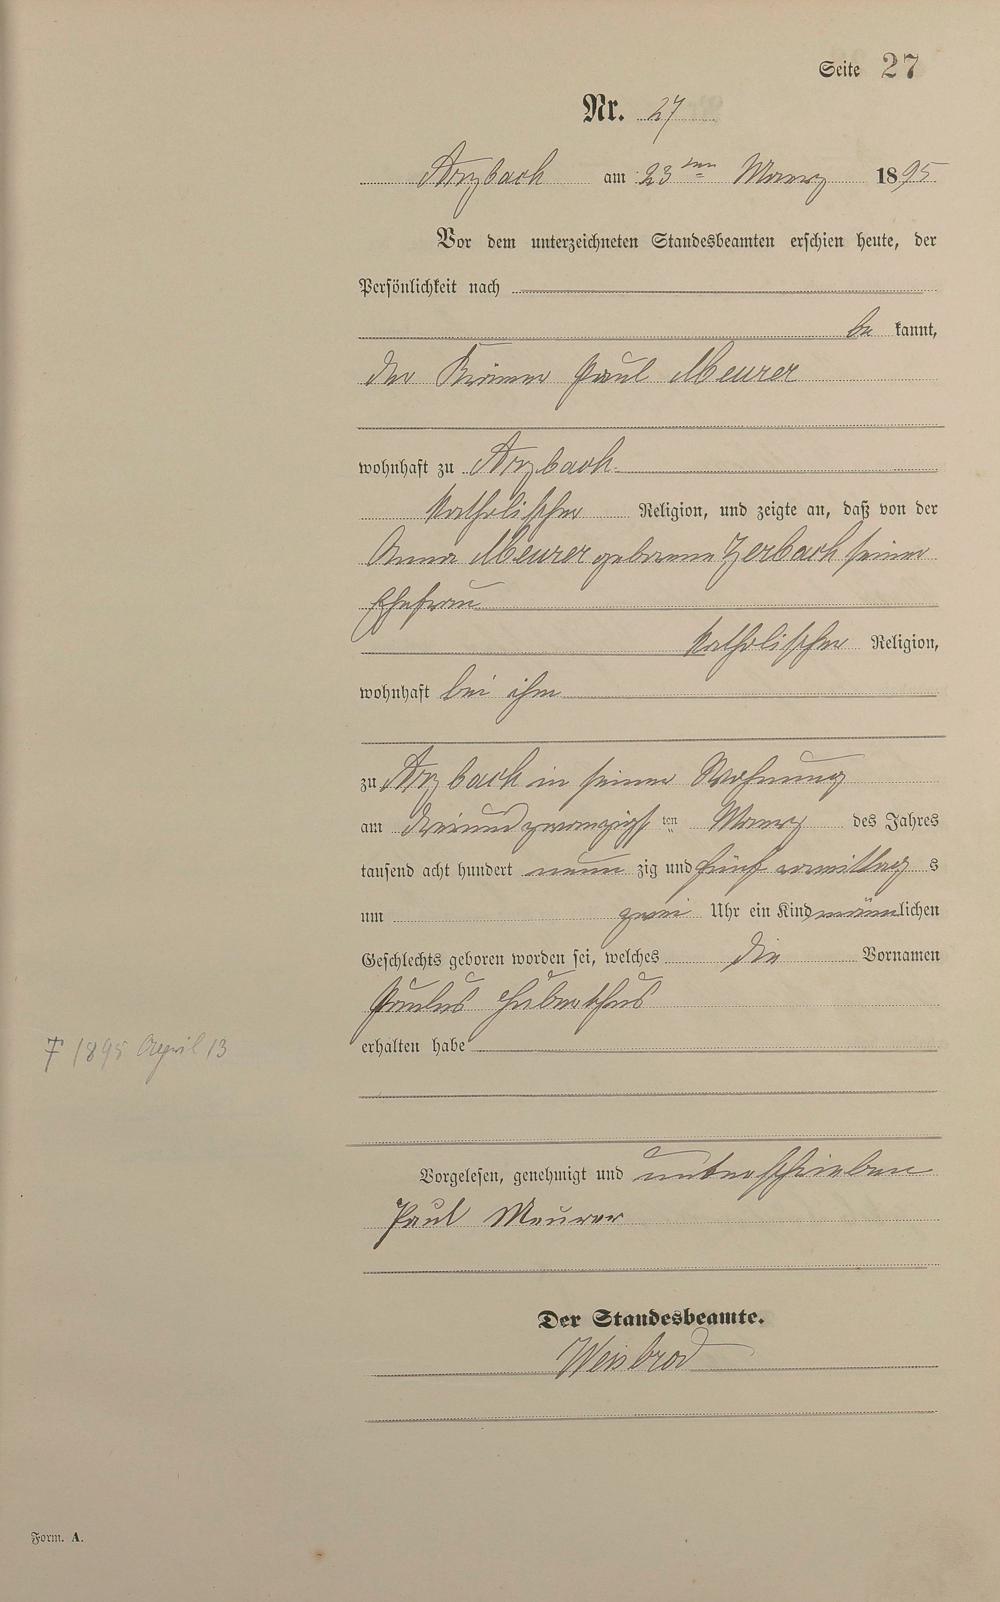 Seite 27
Nr. 27
Arzbach am 23 ten Maerz 1895
Vor dem unterzeichneten Standesbeamten erschien heute, der
Persönlichkeit nach
be kannt,
der Krämer Paul Meurer
wohnhaft zu Arzbach
katholischer Religion, und zeigte an, daß von der
Anna Meurer geborene Zerbach seiner
Ehefrau
katholischer Religion,
wohnhaft bei ihm
zu Arzbach in seiner Wohnung
am dreiundzwanzigs ten Maerz des Jahres
tausend acht hundert neun zig und fünf vormittag s
um zwei Uhr ein Kind männlichen
Geschlechts geboren worden sei, welches die Vornamen
Paulus Huberthus
† 1895 April 13
erhalten habe
Vorgelesen, genehmigt und unterschrieben
Paul Meurer
Der Standesbeamte.
Weisbrod
Form. A.